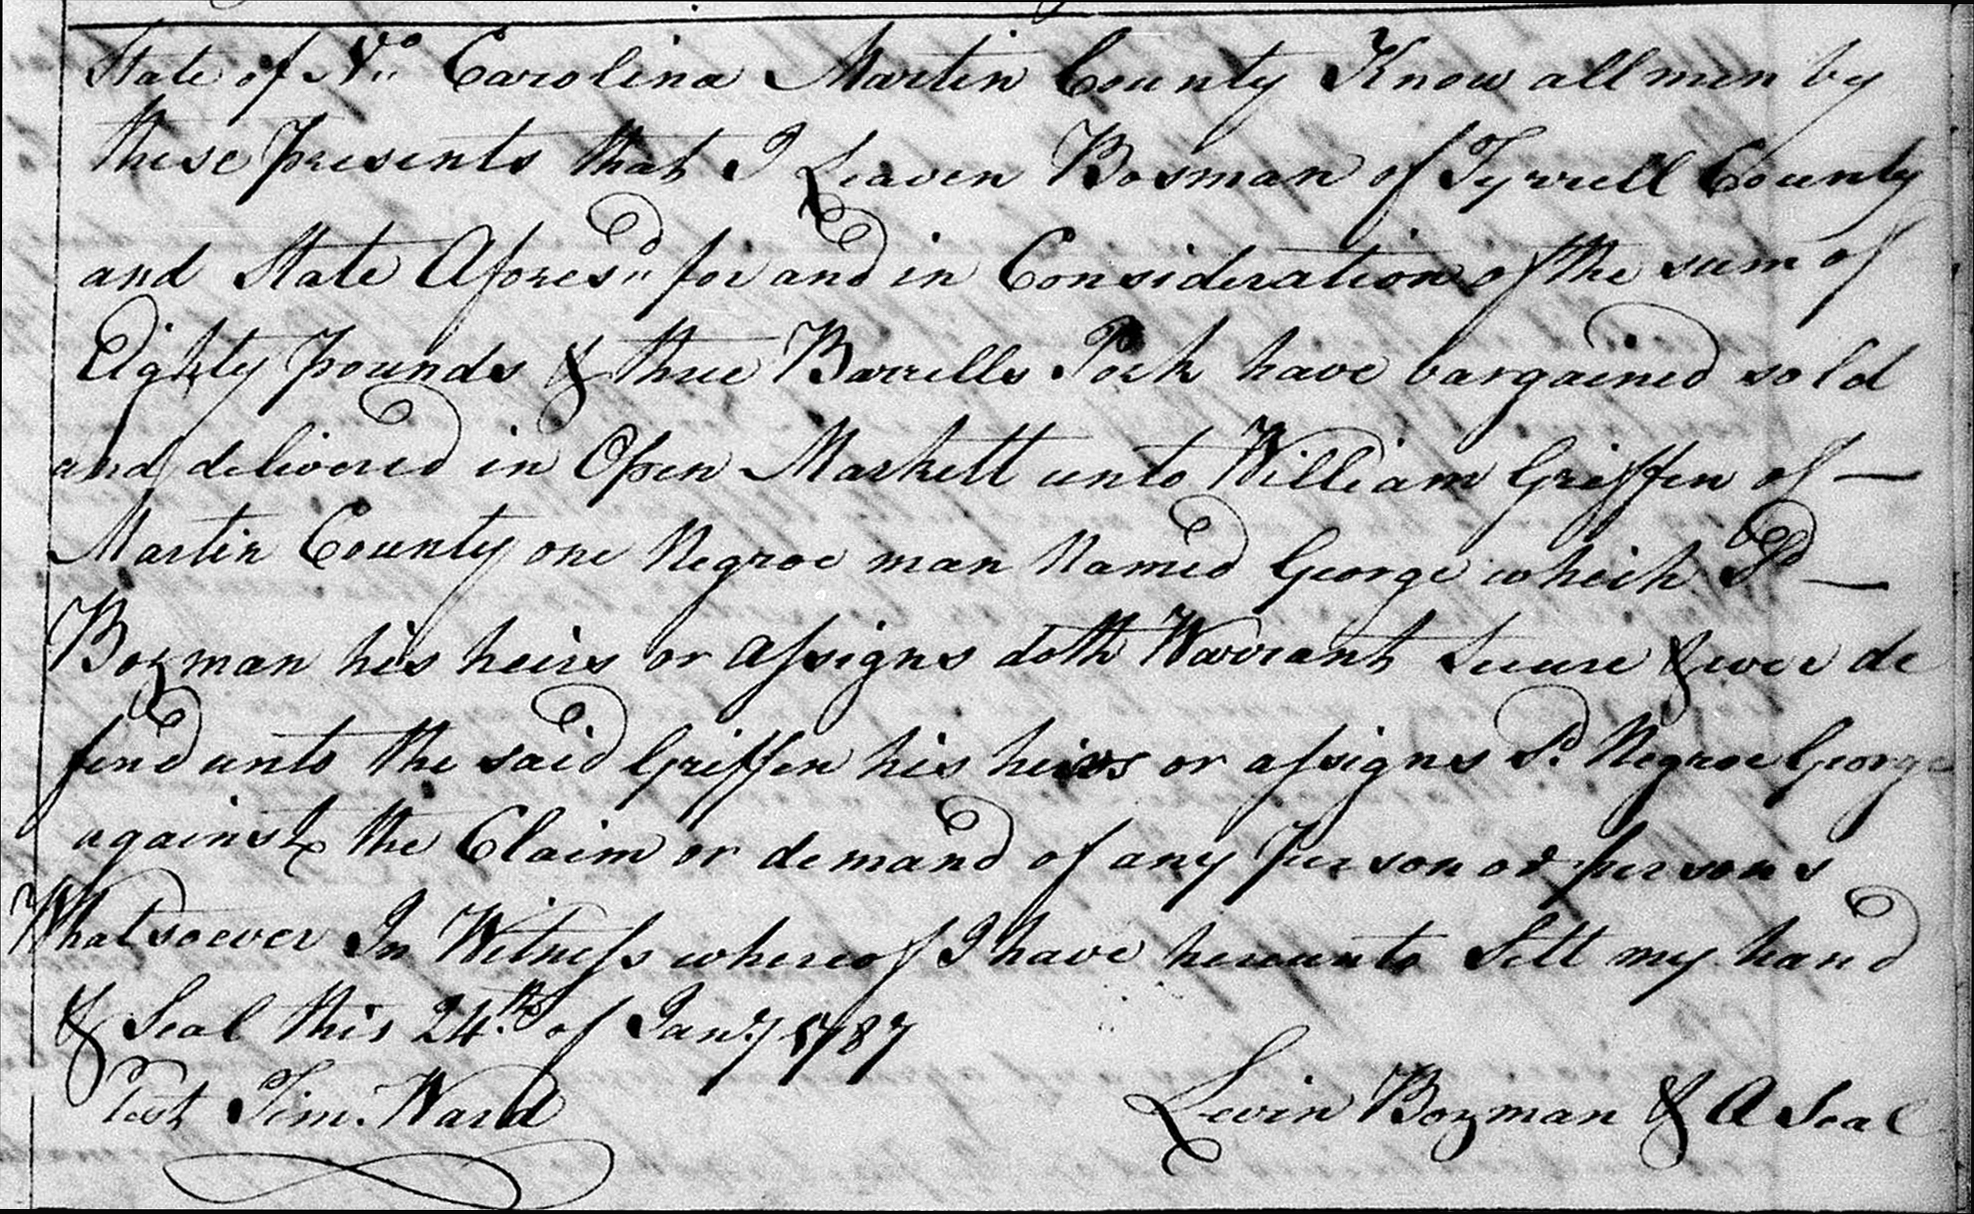 State of No. Carolina Martin County Know all men by
these presents that I Leaven Bosman of Tyrrell County
and State Aforesd. for and in Consideration of the sum of
Eighty pounds & three Barrells Pork have bargained sold
and delivered in Open Markett unto William Griffen of —
Martin County one Negroe man Named George which Sd —
Bozman his heirs or assigns doth Warrant Secure & ever de
fend unto the said Griffen his heirs or assigns Sd. Negroe George
against the Claim or demand of any Person or persons
Whatsoever In Witness whereof I have hereunto Sett my hand
& Seal this 24th. of Jany. 1787
Test Tim. Ward
Levin Bozman & A Seal